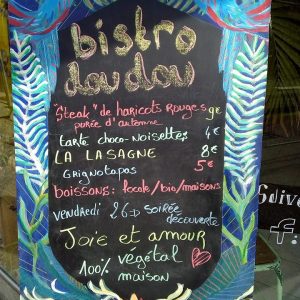 bistro
doudou
"Steak" de haricots rouges 9€
purée d'automne
tarte choco-noisettes 4€
LA LASAGNE 8€
Grignotapas 5€
boissons: locale/bio/maisons
vendredi 26 → soirée
découverte
Joie et amour
100% végétal
maison
Suive
f